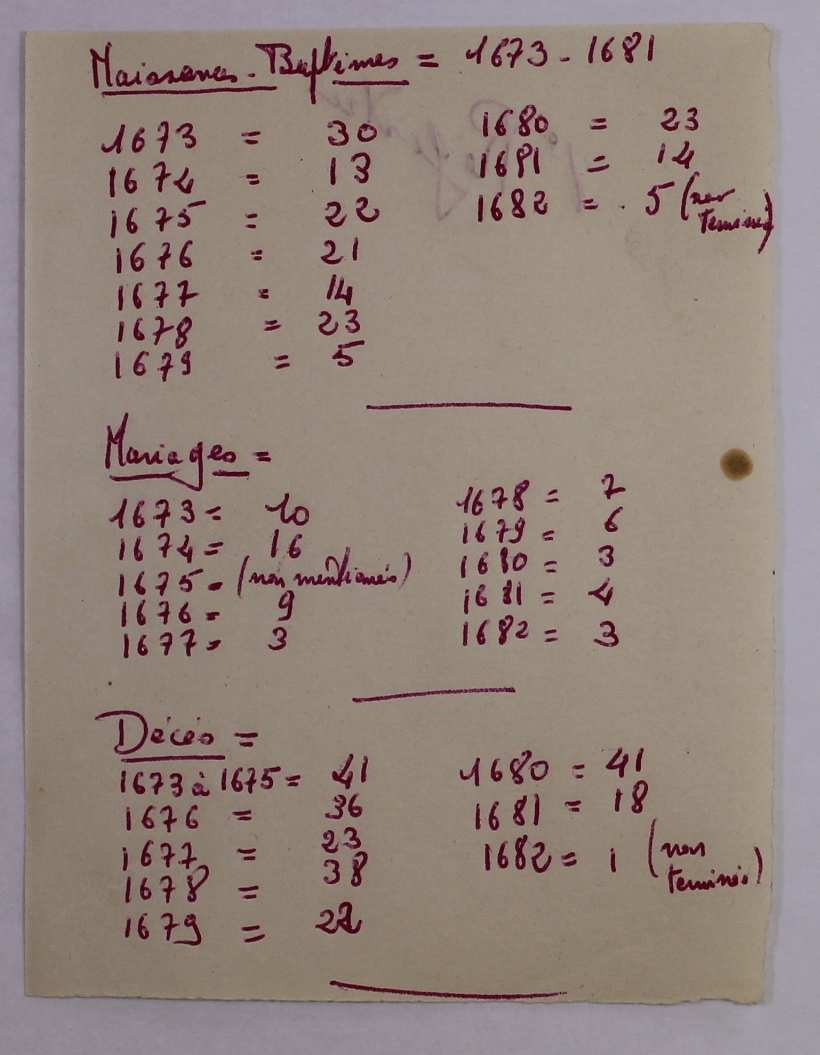 Naissances - Baptêmes = 1673 - 1681
1673 = 30
1674 = 13
1675 = 22
1676 = 21
1677 = 14
1678 = 23
1679 = 5
1680 = 23
1681 = 14
1682 = 5 (non
terminé)
Mariages =
1673 = 10
1674 = 16
1675 = (non mentionnés)
1676 = 9
1677 = 3
1678 = 7
1679 = 6
1680 = 3
1681 = 4
1682 = 3
Décés =
1673 à 1675 = 41
1676 = 36
1677 = 23
1678 = 38
1679 = 22
1680 = 41
1681 = 18
1682 = 1 (non
terminés)